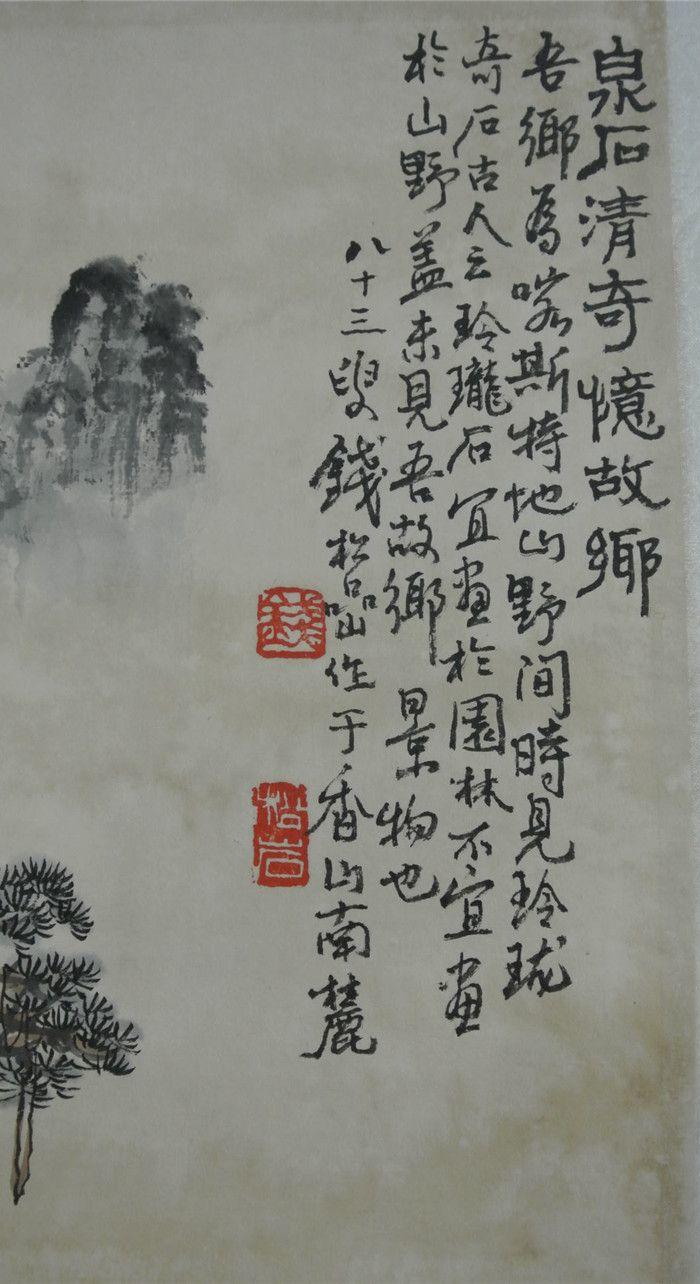 泉石清奇憶故鄉
吾鄉為喀斯特地山野間時見玲珑
奇石古人云玲瓏石宜畫於園林不宜畫
於山野蓋未見吾故鄉景物也
八十三叟錢松嵒作于香山南麓
錢